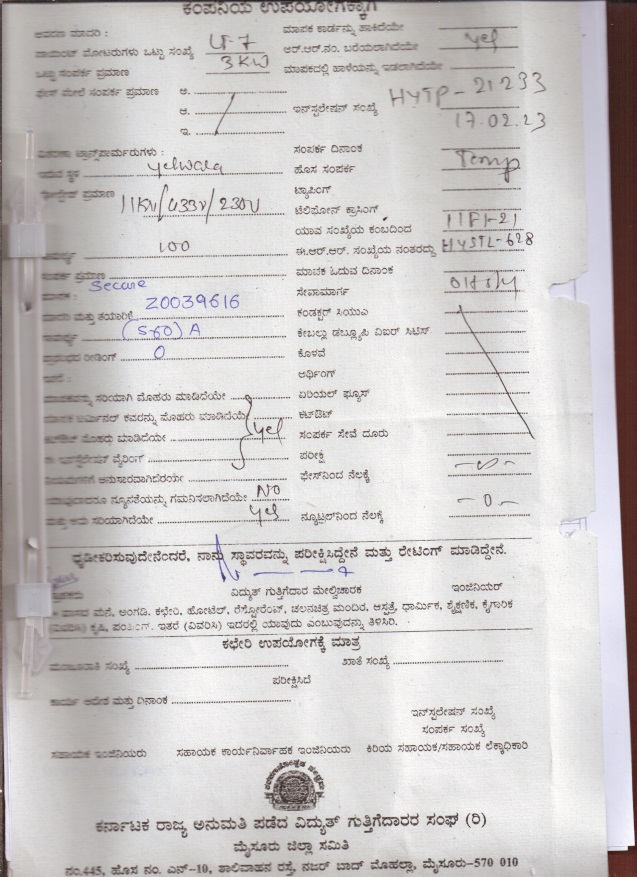 ಕಂಪನಿಯ ಉಪಯೋಗಕ್ಕಾಗಿ
ಮಾಪಕ ಕಾರ್ಡನ್ನು ಹಾಕಿದೆಯೇ yes
ಪಾಯಿಂಟ್ ಮೋಟರುಗಳು ಒಟ್ಟು ಸಂಖ್ಯೆ LT-7 ಆರ್.ಆರ್.ನಂ. ಬರೆಯಲಾಗಿದೆಯೇ
ಒಟ್ಟು ಸಂಪರ್ಕ ಪ್ರಮಾಣ 3KW ಮಾಪಕದಲ್ಲಿ ಹಾಳೆಯನ್ನು ಇಡಲಾಗಿದೆಯೇ
ಫೇಸ್ ಮೇಲೆ ಸಂಪರ್ಕ ಪ್ರಮಾಣ ಅ.
ಆ. ಇನ್‌ಸ್ಟಲೇಷನ್ ಸಂಖ್ಯೆ HYTP-21293
ಇ. 17.02.23
ಸಂಪರ್ಕ ದಿನಾಂಕ
ಇರುವ ಸ್ಥಳ Yelwala ಹೊಸ ಸಂಪರ್ಕ Temp
ಪ್ರಮಾಣ 11KV/433V/230V ಟ್ಯಾಪಿಂಗ್
ಟೆಲಿಫೋನ್ ಕ್ರಾಸಿಂಗ್
ಯಾವ ಸಂಖ್ಯೆಯ ಕಂಬದಿಂದ
100 ಈ.ಆರ್.ಆರ್. ಸಂಖ್ಯೆಯ ನಂತರದ್ದು HYSTL-628
ಸಂಪರ್ಕ ಪ್ರಮಾಣ ಮಾಪಕ ಓದುವ ದಿನಾಂಕ
ಮಾಪಕ : Secure ಸೇವಾಮಾರ್ಗ
ಮಾದರಿ ಮತ್ತು ತಯಾರಿಕೆ Z0039616 ಕಂಡಕ್ಟರ್ ಸಿಯುಎ
ಸಾಮರ್ಥ್ಯ (5-60) A ಕೇಬಲ್ಲು ಡಬ್ಲ್ಯೂಪಿ ವಿಐರ್ ಸಿಟಿಸ್
ರೀಡಿಂಗ್ 0 ಕೊಳವೆ
ಅರ್ಥಿಂಗ್
ಮಾಪಕವನ್ನು ಸರಿಯಾಗಿ ಮೊಹರು ಮಾಡಿದೆಯೇ ಏರಿಯಲ್ ಫ್ಯೂಸ್
ಮಾಪಕ ಟರ್ಮಿನಲ್ ಕವರನ್ನು ಮೊಹರು ಮಾಡಿದೆಯೆ yes ಕಟ್‌ಔಟ್
ಕಟ್‌ಔಟ್ ಮೊಹರು ಮಾಡಿದೆಯೇ ಸಂಪರ್ಕ ಸೇವೆ ದೂರು
ಈ ಇನ್‌ಸ್ಟಲೇಷನ್ ವೈರಿಂಗ್ ಪರೀಕ್ಷೆ
ನಿಯಮಗಳಿಗೆ ಅನುಸಾರವಾಗಿದೆಯೇ ಫೇಸ್‌ನಿಂದ ನೆಲಕ್ಕೆ
ಯಾವುದಾದರೂ ನ್ಯೂನತೆಯನ್ನು ಗಮನಿಸಲಾಗಿದೆಯೇ NO
ಮತ್ತು ಅದು ಸರಿಯಾಗಿದೆಯೇ yes ನ್ಯೂಟ್ರಲ್‌ನಿಂದ ನೆಲಕ್ಕೆ -0-
ಧೃಡೀಕರಿಸುವುದೇನೆಂದರೆ, ನಾನು ಸ್ಥಾವರವನ್ನು ಪರೀಕ್ಷಿಸಿದ್ದೇನೆ ಮತ್ತು ರೇಟಿಂಗ್ ಮಾಡಿದ್ದೇನೆ.
ವಿದ್ಯುತ್ ಗುತ್ತಿಗೆದಾರ ಮೇಲ್ವಿಚಾರಕ ಇಂಜಿನಿಯರ್
ವಾಸದ ಮನೆ, ಅಂಗಡಿ, ಕಛೇರಿ, ಹೋಟೆಲ್, ರೆಸ್ಟೋರೆಂಟ್, ಚಲನಚಿತ್ರ ಮಂದಿರ, ಆಸ್ಪತ್ರೆ, ಧಾರ್ಮಿಕ, ಶೈಕ್ಷಣಿಕ, ಕೈಗಾರಿಕ
(ವಿವರಿಸಿ) ಕೃಷಿ, ಪಂಪಿಂಗ್, ಇತರೆ (ವಿವರಿಸಿ) ಇದರಲ್ಲಿ ಯಾವುದು ಎಂಬುವುದನ್ನು ತಿಳಿಸಿರಿ.
ಕಛೇರಿ ಉಪಯೋಗಕ್ಕೆ ಮಾತ್ರ
ಮಂಜೂರಾತಿ ಸಂಖ್ಯೆ ಖಾತೆ ಸಂಖ್ಯೆ
ಪರೀಕ್ಷಿಸಿದೆ
ಕಾರ್ಯ ಆದೇಶ ಮತ್ತು ದಿನಾಂಕ
ಇನ್‌ಸ್ಟಲೇಷನ್ ಸಂಖ್ಯೆ
ಸಂಪರ್ಕ ಸಂಖ್ಯೆ
ಸಹಾಯಕ ಇಂಜಿನಿಯರು ಸಹಾಯಕ ಕಾರ್ಯನಿರ್ವಾಹಕ ಇಂಜಿನಿಯರು ಕಿರಿಯ ಸಹಾಯಕ/ಸಹಾಯಕ ಲೆಕ್ಕಾಧಿಕಾರಿ
ಕರ್ನಾಟಕ ರಾಜ್ಯ ಅನುಮತಿ ಪಡೆದ ವಿದ್ಯುತ್ ಗುತ್ತಿಗೆದಾರರ ಸಂಘ (ರಿ)
ಮೈಸೂರು ಜಿಲ್ಲಾ ಸಮಿತಿ
ನಂ.445, ಹೊಸ ನಂ. ಎನ್-10, ಶಾಲಿವಾಹನ ರಸ್ತೆ, ನಜರ್ ಬಾದ್ ಮೊಹಲ್ಲಾ, ಮೈಸೂರು-570 010